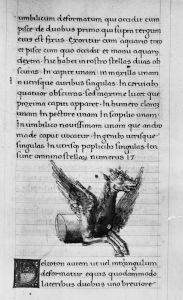 umbilicum deformatum, quo occidit cum
pisce de duobus primo qui supra tergum
eius est fixus. Exoritur cum aquario toto
et pisce cum quo occidit et manu aquarii
dextra. hic habet in rostro stellas duas ob
scuras. In capite unam. in maxilla unam
In utrisque auribus singulas. In cervicibus
quatuor obscuras. Sed maxime lucet quae
proxima caput apparet. In humero clarior
unam. In pectore unam. In scapulio unam
In umbilico novissimam unam quae andro
medae caput vocatur. In genibus utrisque
singulas. In utrisque poplicibus singulas. In
summe omnino stellarum numerus 17
Deltoton autem ut ut in triangulum
deformatur aequis quodammodo
lateribus duobus uno breviore